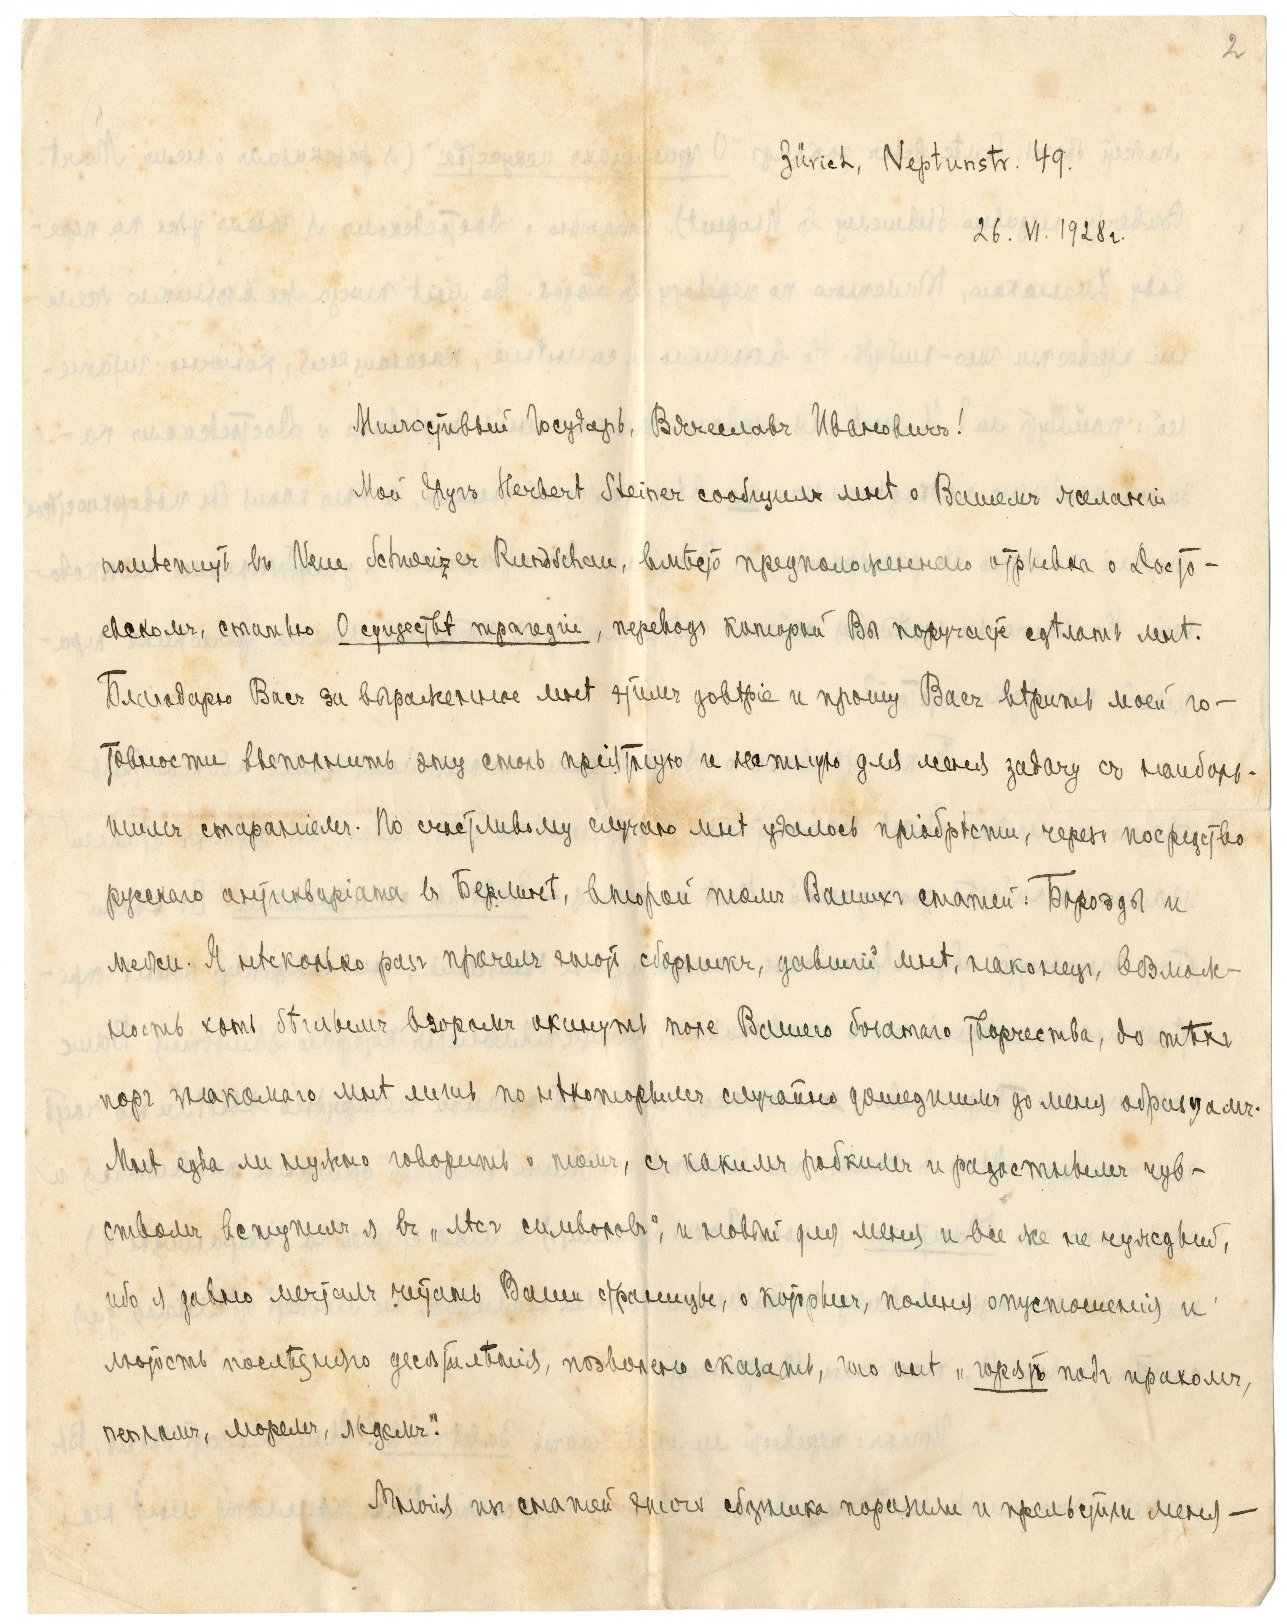 2
Zürich, Neptunstr. 49.
26. VI. 1928 г.
Милостивый Государь, Вячеславъ Ивановичъ!
Мой другъ Herbert Steiner сообщилъ мнѣ о Вашемъ желаніи
помѣстить въ Neue Schweizer Rundschau, вмѣсто предположеннаго отрывка о Досто-
евскомъ, статью О существѣ трагедіи, переводъ которой Вы поручаете сдѣлать мнѣ.
Благодарю Васъ за выраженное мнѣ этимъ довѣріе и прошу Васъ вѣрить моей го-
товности выполнить эту столь пріятную и лестную для меня задачу съ наиболь-
шимъ стараніемъ. По счастливому случаю мнѣ удалось пріобрѣсти, черезъ посредство
русскаго антикваріата въ Берлинѣ, второй томъ Вашихъ статей: Борозды и
межи. Я нѣсколько разъ прочелъ этотъ сборникъ, давшій мнѣ, наконецъ, возмож-
ность хоть бѣглымъ взоромъ окинуть поле Вашего богатаго творчества, до тѣхъ
поръ знакомаго мнѣ лишь по нѣкоторымъ случайно дошедшимъ до меня образцамъ.
Мнѣ едва ли нужно говорить о томъ, съ какимъ робкимъ и радостнымъ чув-
ствомъ вступилъ я въ „лѣсъ символовъ", и новый для меня и все же не чуждый,
ибо я давно мечталъ читать Ваши страницы, о которыхъ, помня опустошенія и
лютость послѣдняго десятилѣтія, позволено сказать, что онѣ „горятъ подъ прахомъ,
пепломъ, моремъ, льдомъ".
Многія изъ статей этого сборника поразили и прельстили меня —